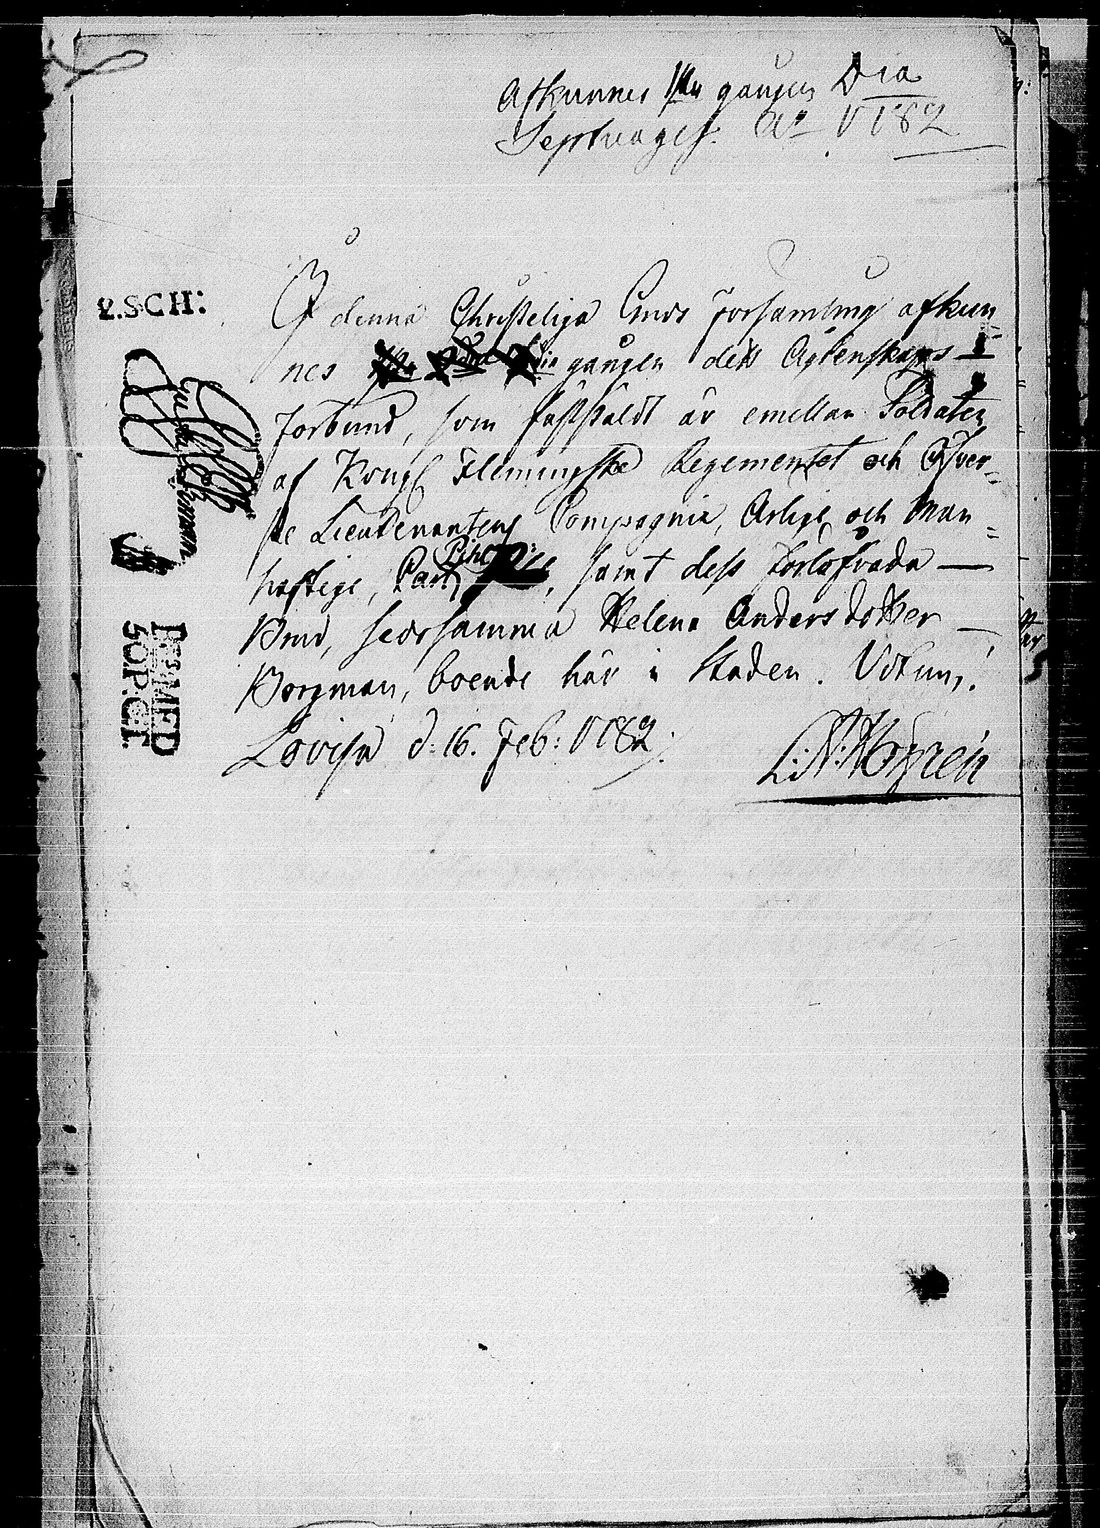 Afkunnes 1sta gången Dca
Septuages. Ao 1782
I denna Christeliga Guds Församling afkun
nes gången det Ägtenskaps
förbund, som fastställdt är emellan Soldaten
af Kongl Flemingske Regementet och Öfver-
ste Lieutenantens Compagnie, Ärlige och Man-
haftige, Carl Pihl, samt dess förlofvada
Brud, hedersamma Helena Andersdotter
Borgman, boende här i Staden.
Lovisa d: 16. Feb: 1782.
2.SCH: